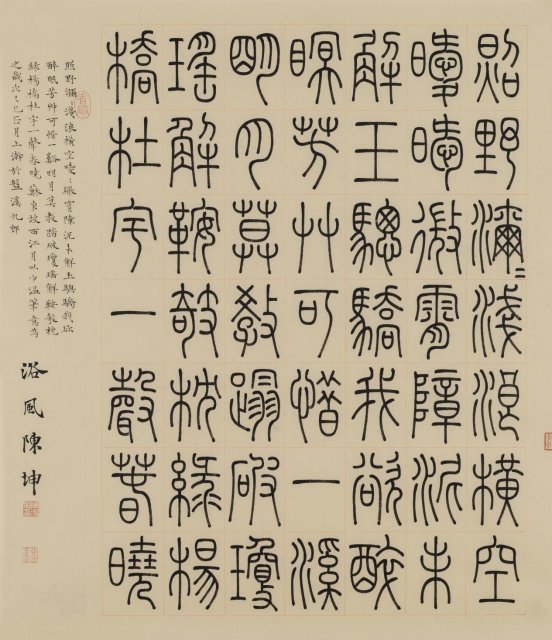 照野瀰〻淺浪橫空
曖曖微霄障泥未
解玉驄驕我欲醉
瞑芳艸可惜一溪
明月莫教踏破瓊
瑤解鞍攲枕綠楊
橋杜宇一聲春曉
照野瀰〻淺浪橫空曖〻微霄障泥未解玉驄驕我欲
醉眠芳艸可惜一谿明月莫教踏破瓊瑤解鞍攲枕
綠楊橋杜宇一聲春曉蘇東坡西江月以少溫筆意為
之歲次乙巳月上澣於盤溪九
浴風陳坤